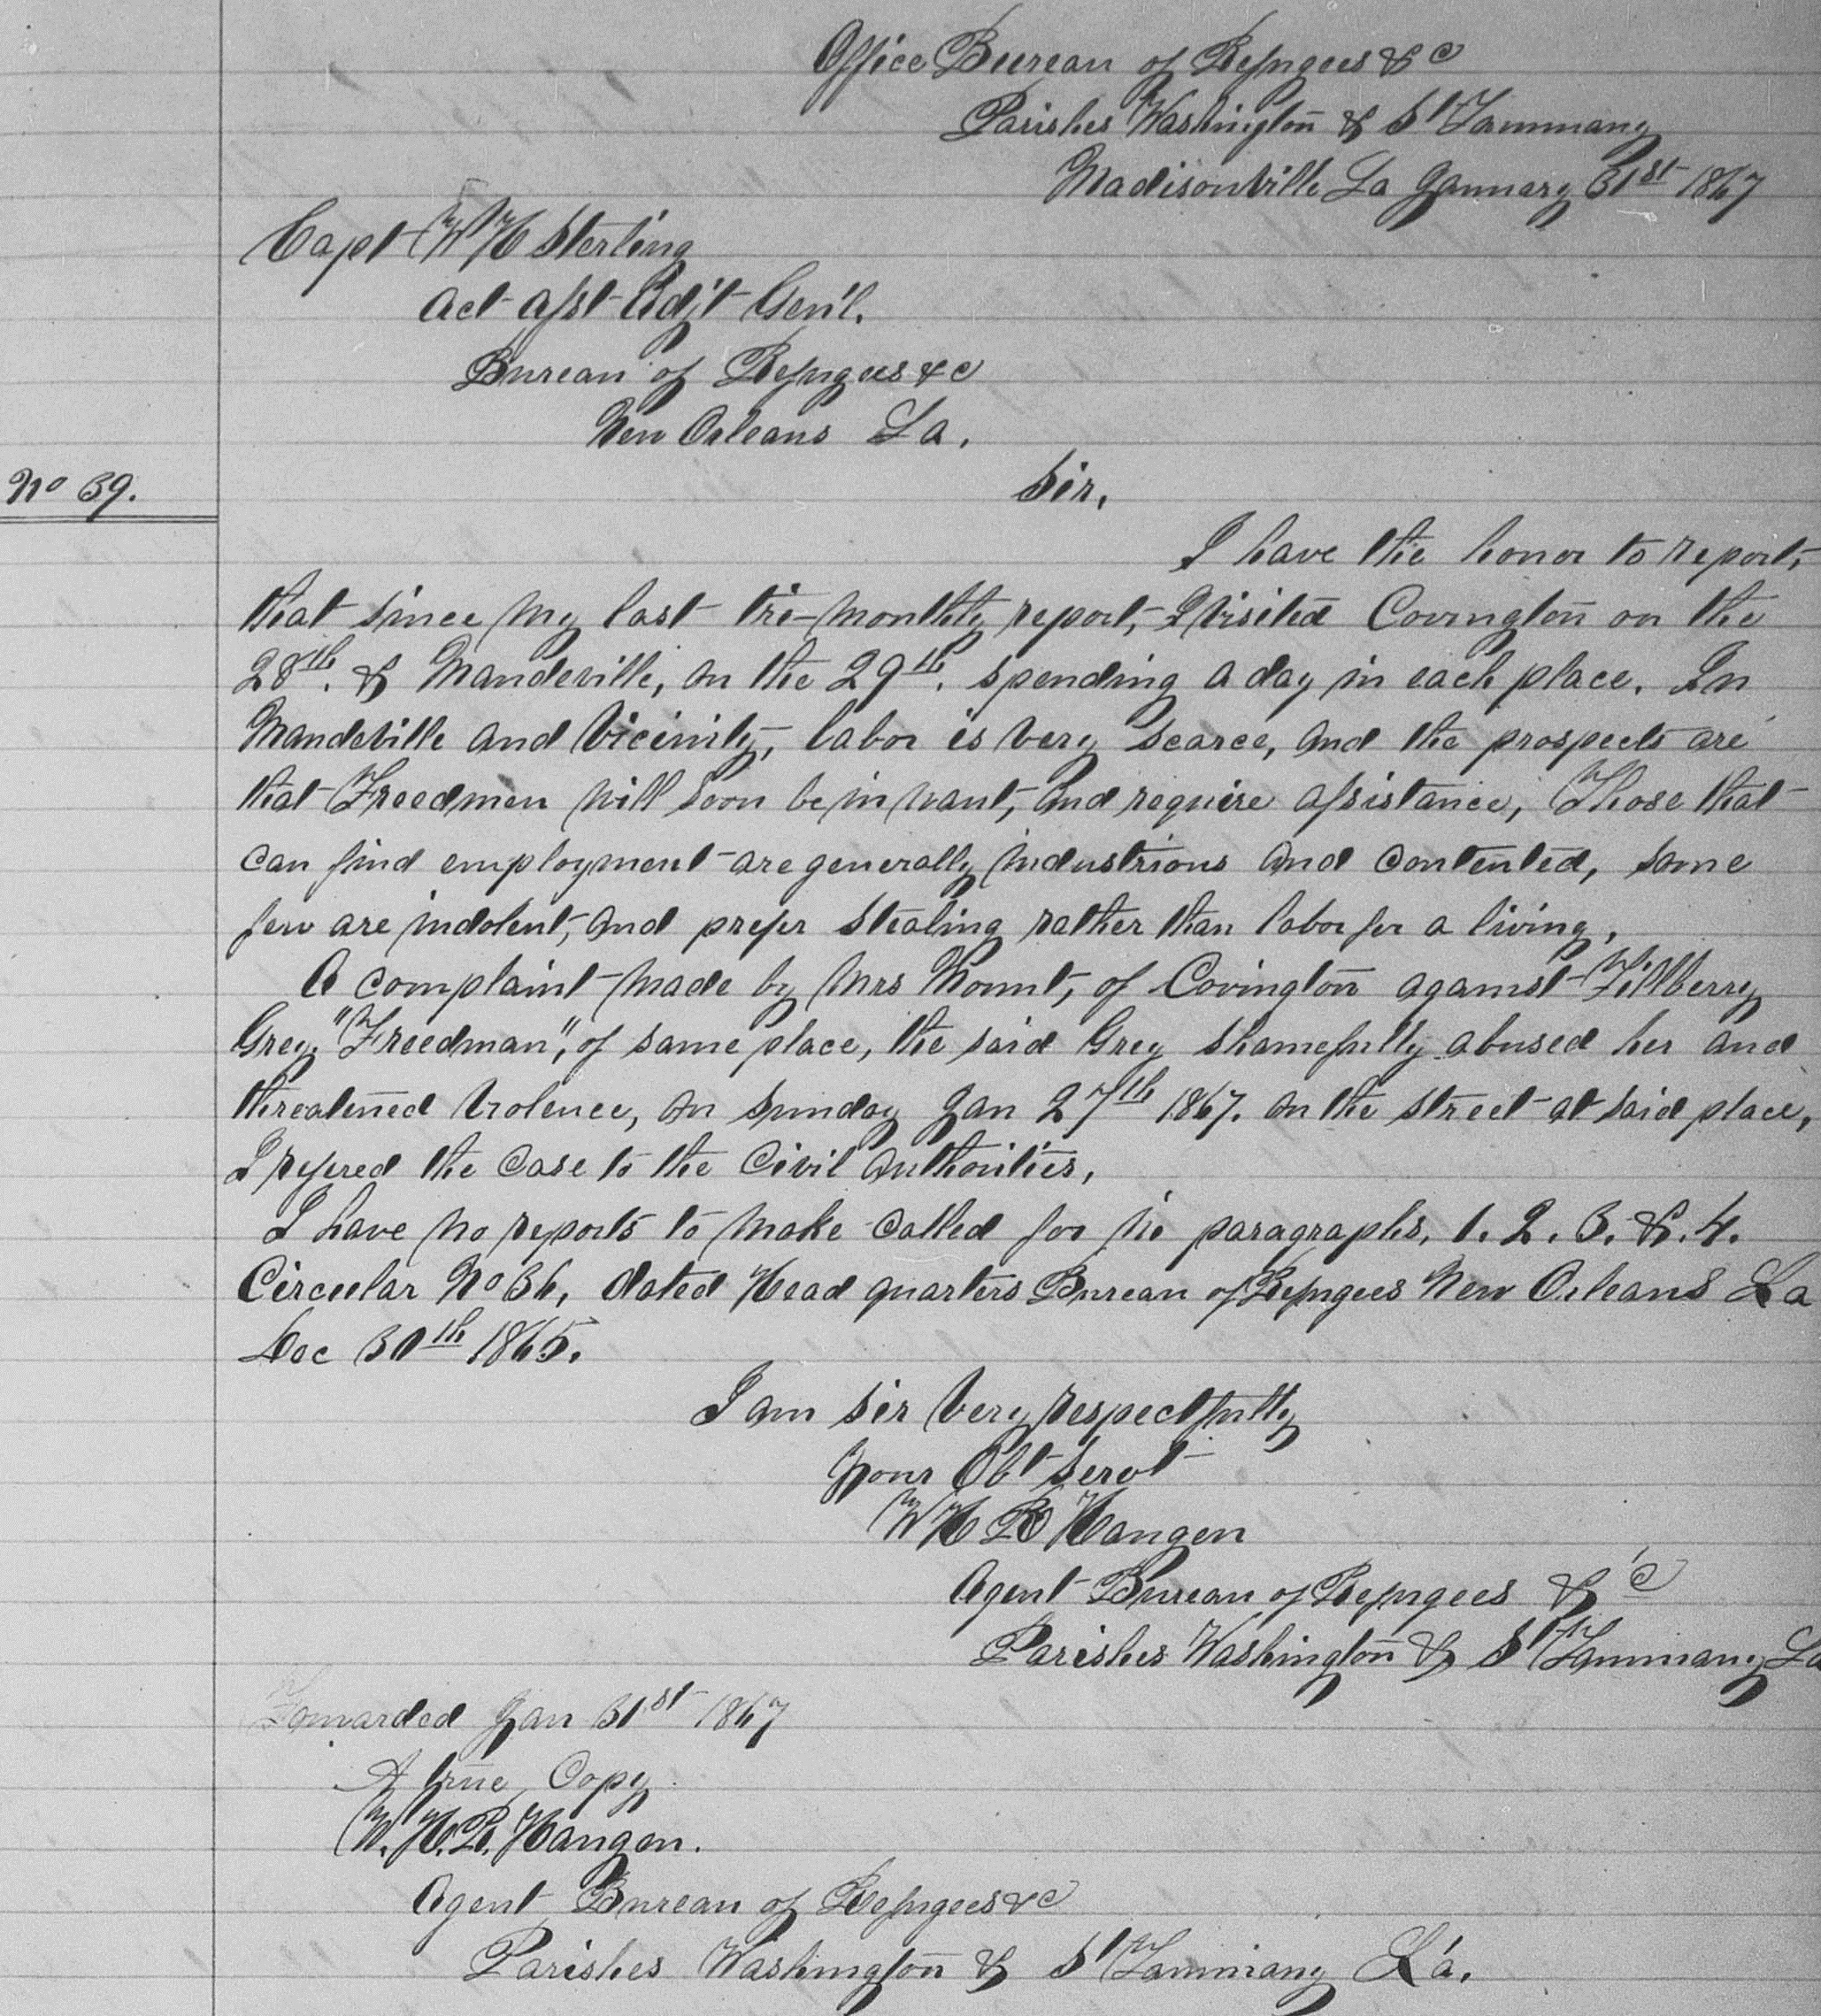 Office Bureau of Refugees & c
Parishes Washington & St Tammany
Madisonville La January 31st 1867
Capt W H Sterling
Act Asst Adj't Gen'l.
Bureau of Refugees & c
New Orleans La.
No 39.
Sir,
I have the honor to report,
that since my last tri-monthly report, I visited Covington on the
28th. & Mandeville, on the 29th. spending a day in each place. In
Mandeville and vicinity, labor is very scarce, and the prospects are
that Freedmen will soon be in want, and require assistance, Those that
can find employment are generally industrious and contented, some
few are indolent, and prefer stealing rather than labor for a living.
A complaint made by Mrs Mount, of Covington against Fillberry
Grey, "Freedman", of same place, the said Grey shamefully abused her and
threatened violence, on Sunday Jan 27th 1867. on the street at said place,
I refered the case to the Civil authorities,
I have no reports to make called for in paragraphs, 1. 2. 3. &. 4.
Circular No 36, dated Head quarters Bureau of Refugees New Orleans La
Dec 30th 1865.
I am sir Very respectfully
Your Obt Servt
W H R Hangen
Agent Bureau of Refugees & c
Parishes Washington & St Tammany La
Forwarded Jan 31st 1867
A true Copy
W. H. R. Hangen.
Agent Bureau of Refugees & c
Parishes Washington & St Tammany La.